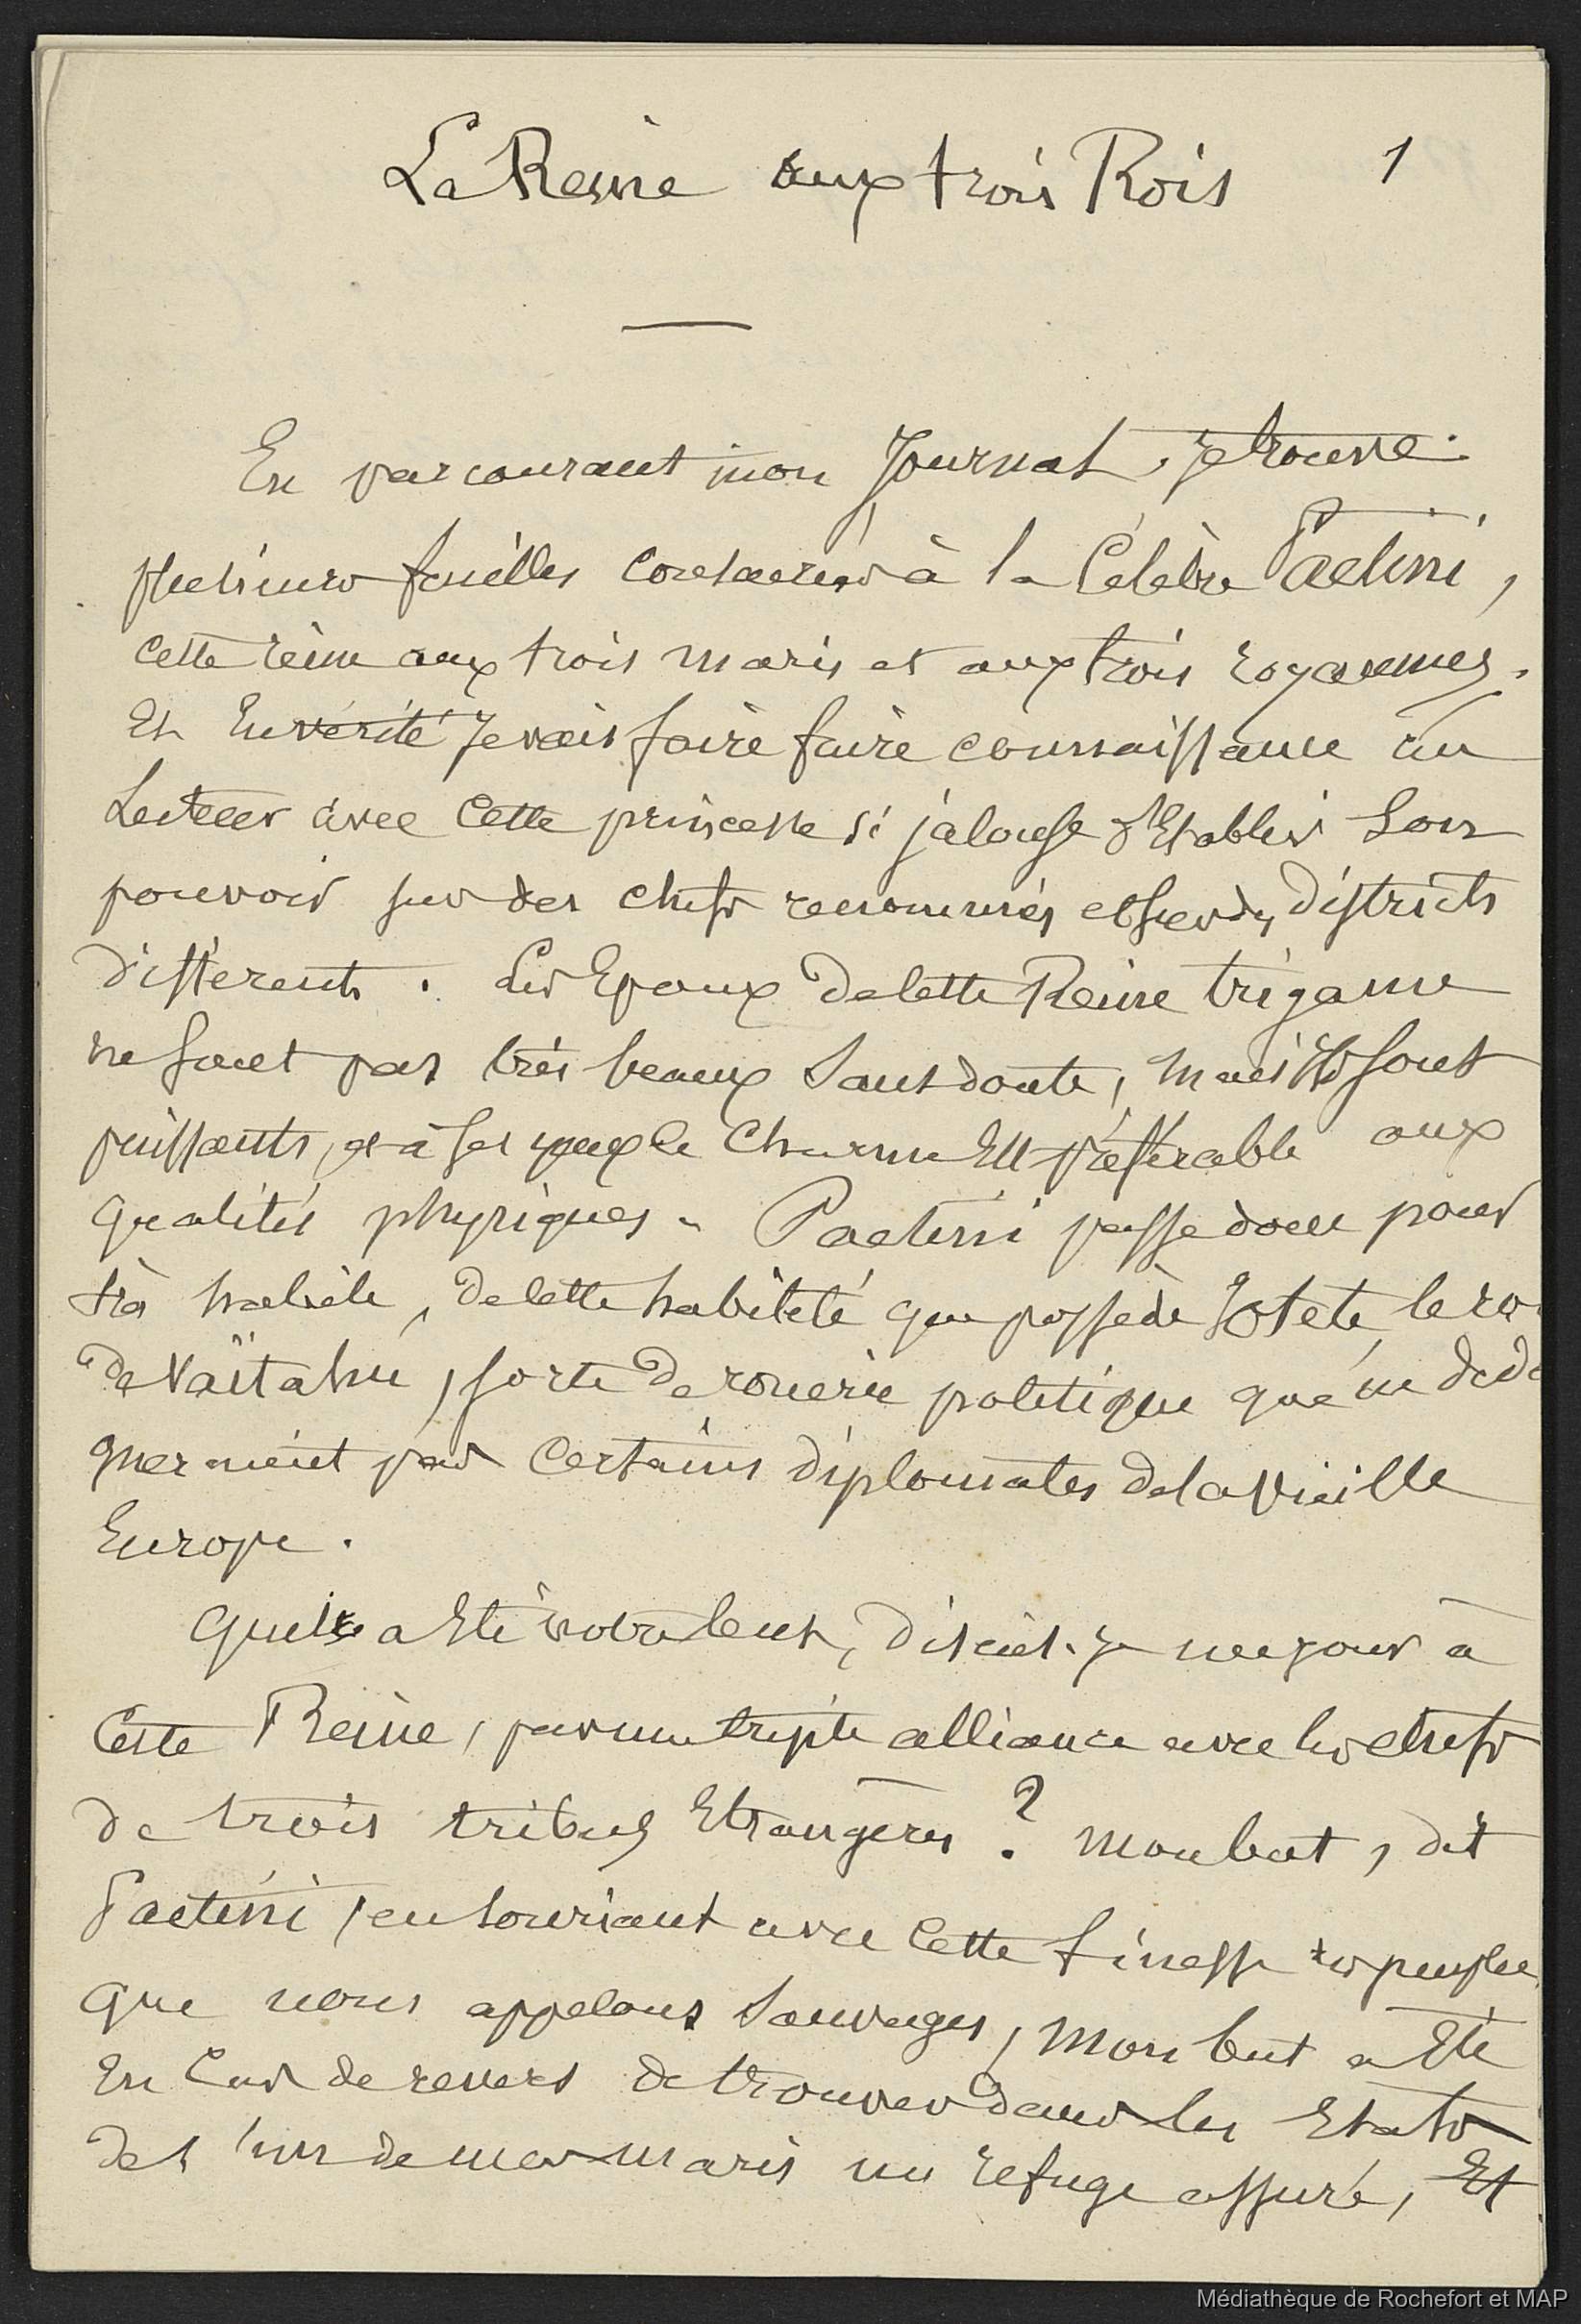 La Reine aux trois Rois 1
En parcourant mon Journal, je trouve
plusieurs feuilles consacrées à la Célèbre Paetini,
cette reine aux trois maris et aux trois royaumes.
Et En vérité Je vais faire faire connaissance au
Lecteur avec cette princesse si jalouse d'Etablir Son
pouvoir sur des chefs renommés et sur des districts
différents. Les Epoux de cette Reine trigame
ne sont pas très beaux Sans doute, mais ils sont
puissants, et à ses yeux le Charme Est préférable aux
qualités physiques. Paetini passe donc pour
très habile, de cette habileté que possède Iotété, le roi
de Vaïtahu, sorte de rouerie politique que ne dédai
gneraient pas Certains diplomates de la vieille
Europe.
Quel a Eté votre but, disais-je un jour à
Cette Reine, par une triple alliance avec les chefs
de trois tribus Etrangères ? Mon but, dit
Paetini, en souriant avec Cette finesse des peuples
que nous appelons Sauvages, Mon but a Eté
En Cas de revers de trouver dans les Etats
de l'un de mes maris un refuge assuré, Et
Médiathèque de Rochefort et MAP